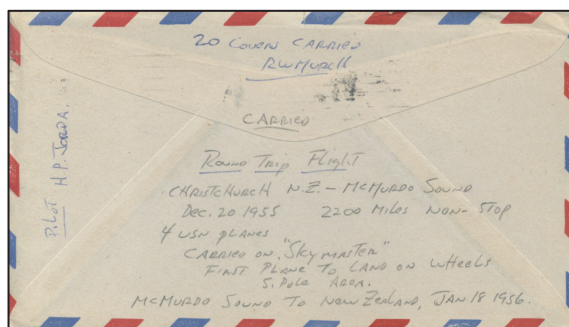 20 COVERS CARRIED
RWMURCH
CARRIED
ROUND TRIP FLIGHT
CHRISTCHURCH N.Z. - MCMURDO SOUND
DEC. 20 1955 2200 MILES NON-STOP
4 USN PLANES
CARRIED ON "SKYMASTER"
FIRST PLANE TO LAND ON WHEELS
S. POLE AREA.
MCMURDO SOUND TO NEW ZEALAND, JAN 18 1956.
PILOT H.P. JORDA.